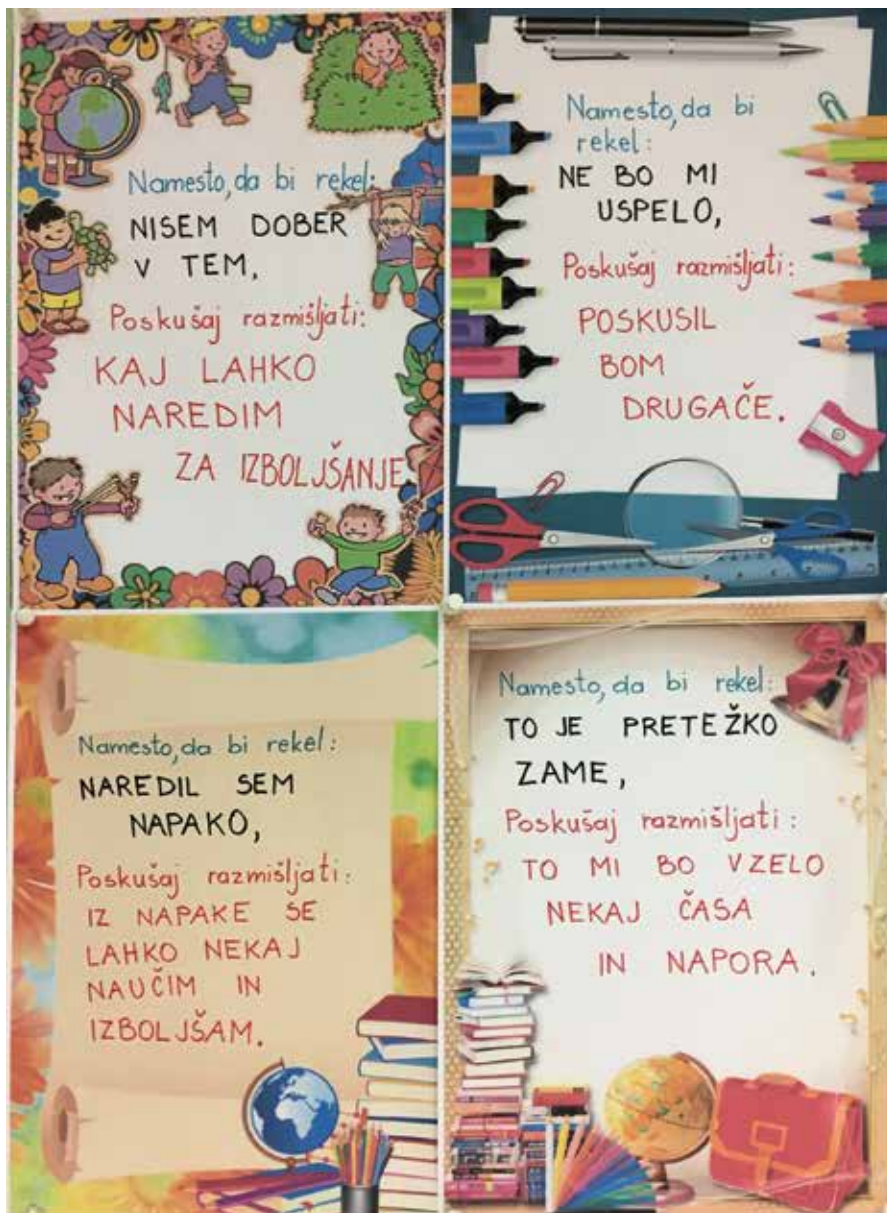 Namesto, da bi rekel:
NISEM DOBER
V TEM,
Poskušaj razmišljati:
KAJ LAHKO
NAREDIM
ZA IZBOLJŠANJE
Namesto, da bi
rekel:
NE BO MI
USPELO,
Poskušaj razmišljati:
POSKUSIL
BOM
DRUGAČE.
Namesto, da bi rekel:
NAREDIL SEM
NAPAKO,
Poskušaj razmišljati:
IZ NAPAKE SE
LAHKO NEKAJ
NAUČIM IN
IZBOLJŠAM.
Namesto, da bi rekel:
TO JE PRETEŽKO
ZAME,
Poskušaj razmišljati:
TO MI BO VZELO
NEKAJ ČASA
IN NAPORA.